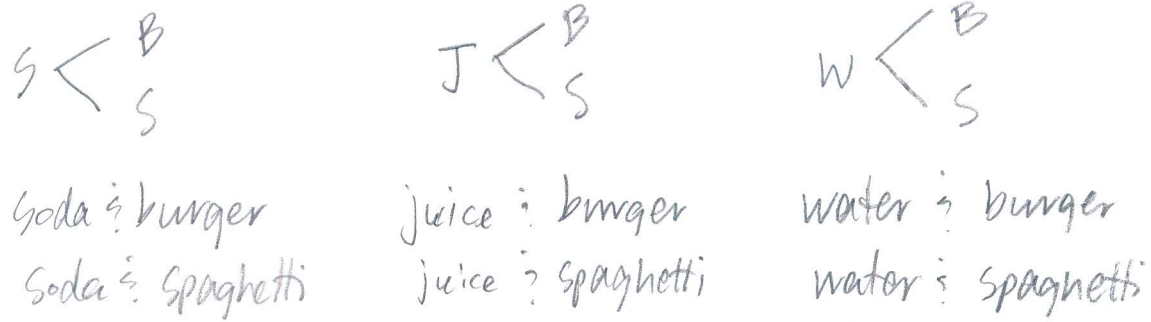 B
S < 
S
B
J <
S
B
W <
S
soda & burger
soda & spaghetti
juice & burger
juice & spaghetti
water & burger
water & spaghetti